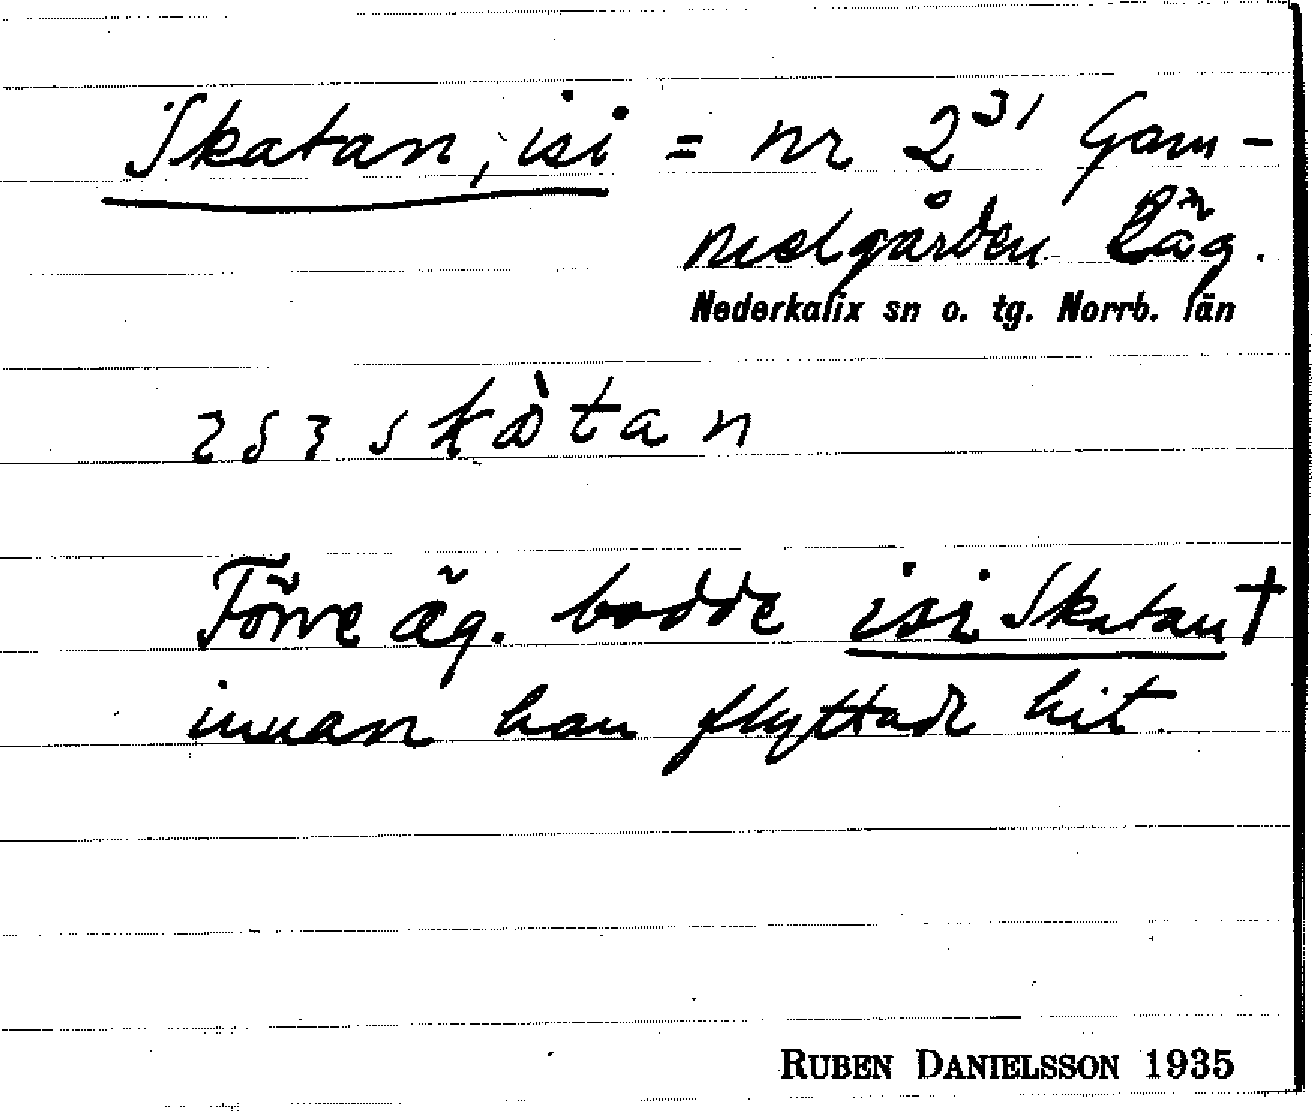 Skatan, isi = nr 2³¹ Gam-
melgården Läg.
Nederkalix sn o. tg. Norrb. län
skàtan
Förre äg. bodde isi Skatan †
innan han flyttade hit.
RUBEN DANIELSSON 1935